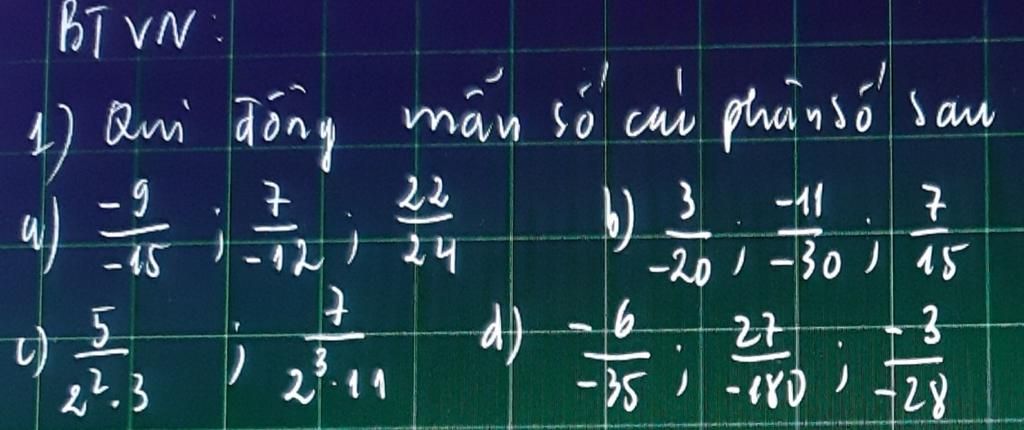 BTVN:
1) Qui đồng mẫu số các phân số sau
a) -9/-15 ; 7/-12 ; 22/24 b) 3/-20 ; -11/-30 ; 7/15
c) 5/2².3 ; 7/2³.11 d) -6/-35 ; 27/-180 ; -3/-28